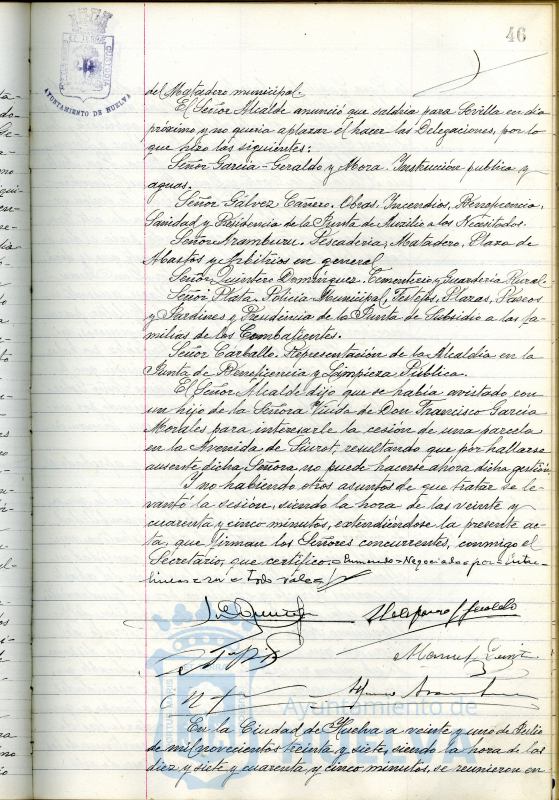 46
AYUNTAMIENTO DE HUELVA
del Matadero municipal.
El Señor Alcalde anunció que saldria para Sevilla en dia
próximo y no queria aplazar el hacer las Delegaciones, por lo
que hizo las siguientes:
Señor Garcia-Geraldo y Mora. Instrucción publica y
aguas.
Señor Gálvez Cañero. Obras, Incendios, Beneficencia,
Sanidad y Presidencia de la Junta de Auxilio a los Necesitados.
Señor Aramburu. Pescaderia, Matadero, Plaza de
Abastos y Arbitrios en general
Señor Quintero Dominguez. Cementerio y Guarderia Rural.-
Señor Plata. Policia Municipal, Festejos, Plazas, Paseos
y Jardines y Presidencia de la Junta de Subsidio a las fa
milias de los Combatientes.
Señor Carballo. Representación de la Alcaldia en la
Junta de Beneficencia y Limpieza Pública.
El Señor Alcalde dijo que se habia avistado con
un hijo de la Señora Viuda de Don Francisco Garcia
Morales para interesarle la cesión de una parcela
en la Avenida de Siurot, resultando que por hallarse
ausente dicha Señora no puede hacerse ahora dicha gestión.
Y no habiendo otros asuntos de que tratar se le-
vantó la sesión, siendo la hora de las veinte y
cuarenta y cinco minutos, extendiéndose la presente ac-
ta, que firman los Señores concurrentes, conmigo el
Secretario, que certifico.= Enmendo=Negociado=por=inter-
lineas= Todo vale=
Ayuntamiento de
HUELVA
En la Ciudad de Huelva a veinte y uno de Julio
de mil novecientos treinta y siete, siendo la hora de las
diez y siete y cuarenta y cinco minutos, se reunieron en